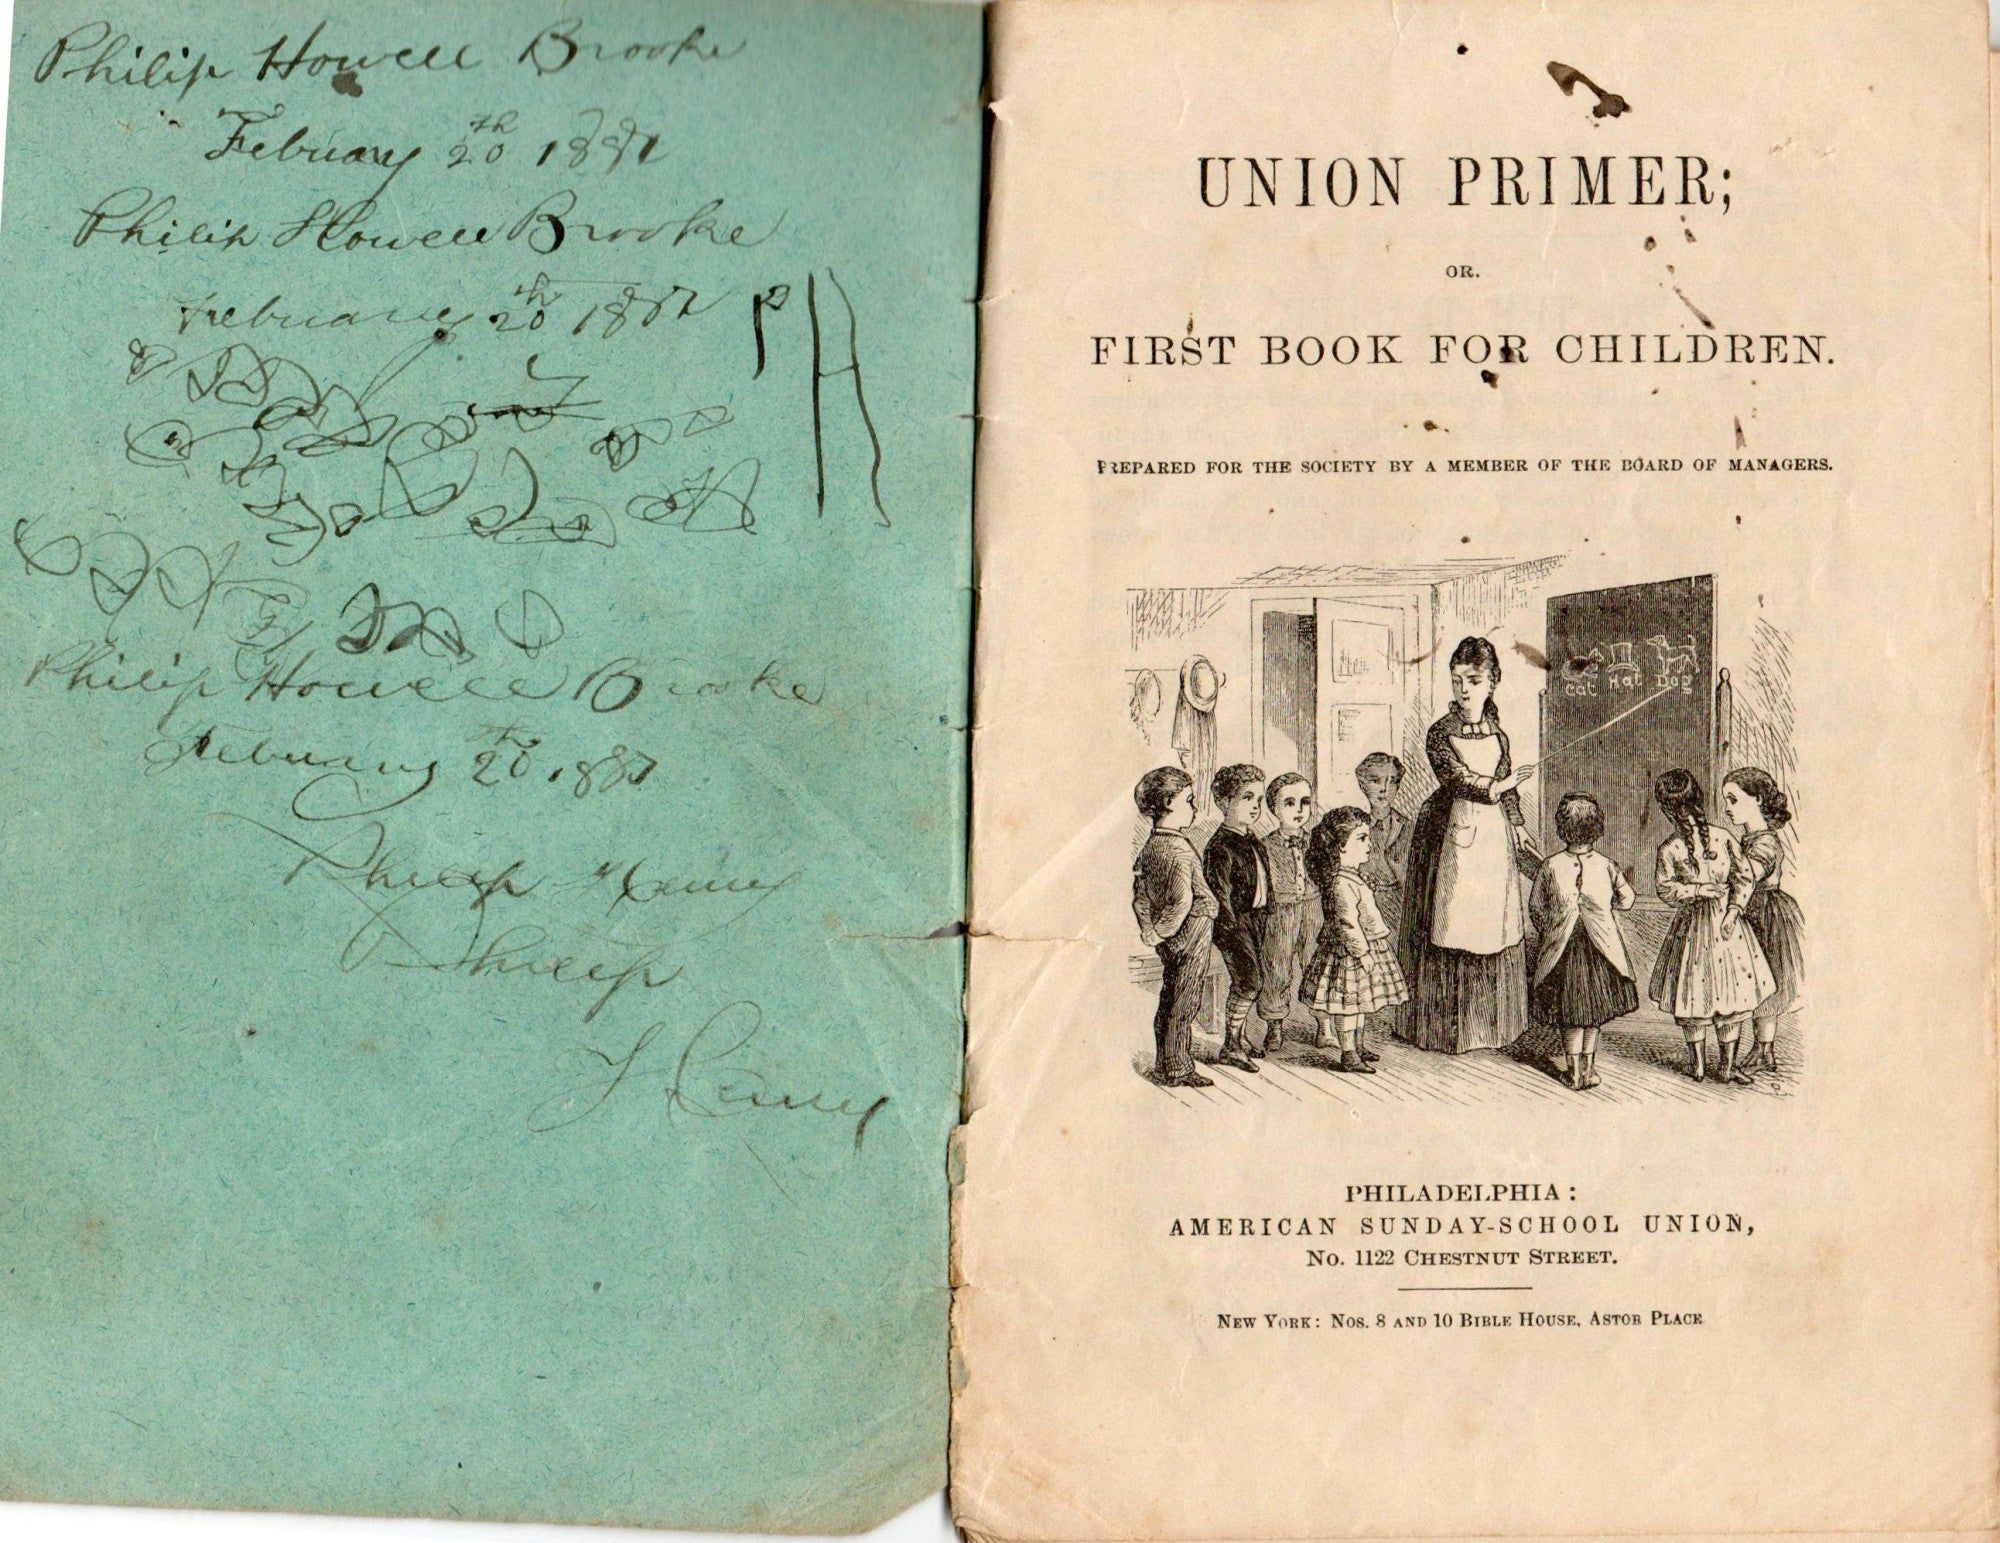 Philip Howell Brooke
February 20th 1881
Philip Howell Brooke
February 20th 1881
PH
Philip Howell Brooke
February 20th 1881
Philip Henry
Philip
Henry
UNION PRIMER;
OR.
FIRST BOOK FOR CHILDREN.
PREPARED FOR THE SOCIETY BY A MEMBER OF THE BOARD OF MANAGERS.
Cat Hat Dog
PHILADELPHIA:
AMERICAN SUNDAY-SCHOOL UNION,
No. 1122 CHESTNUT STREET.
NEW YORK: Nos. 8 AND 10 BIBLE HOUSE, ASTOR PLACE